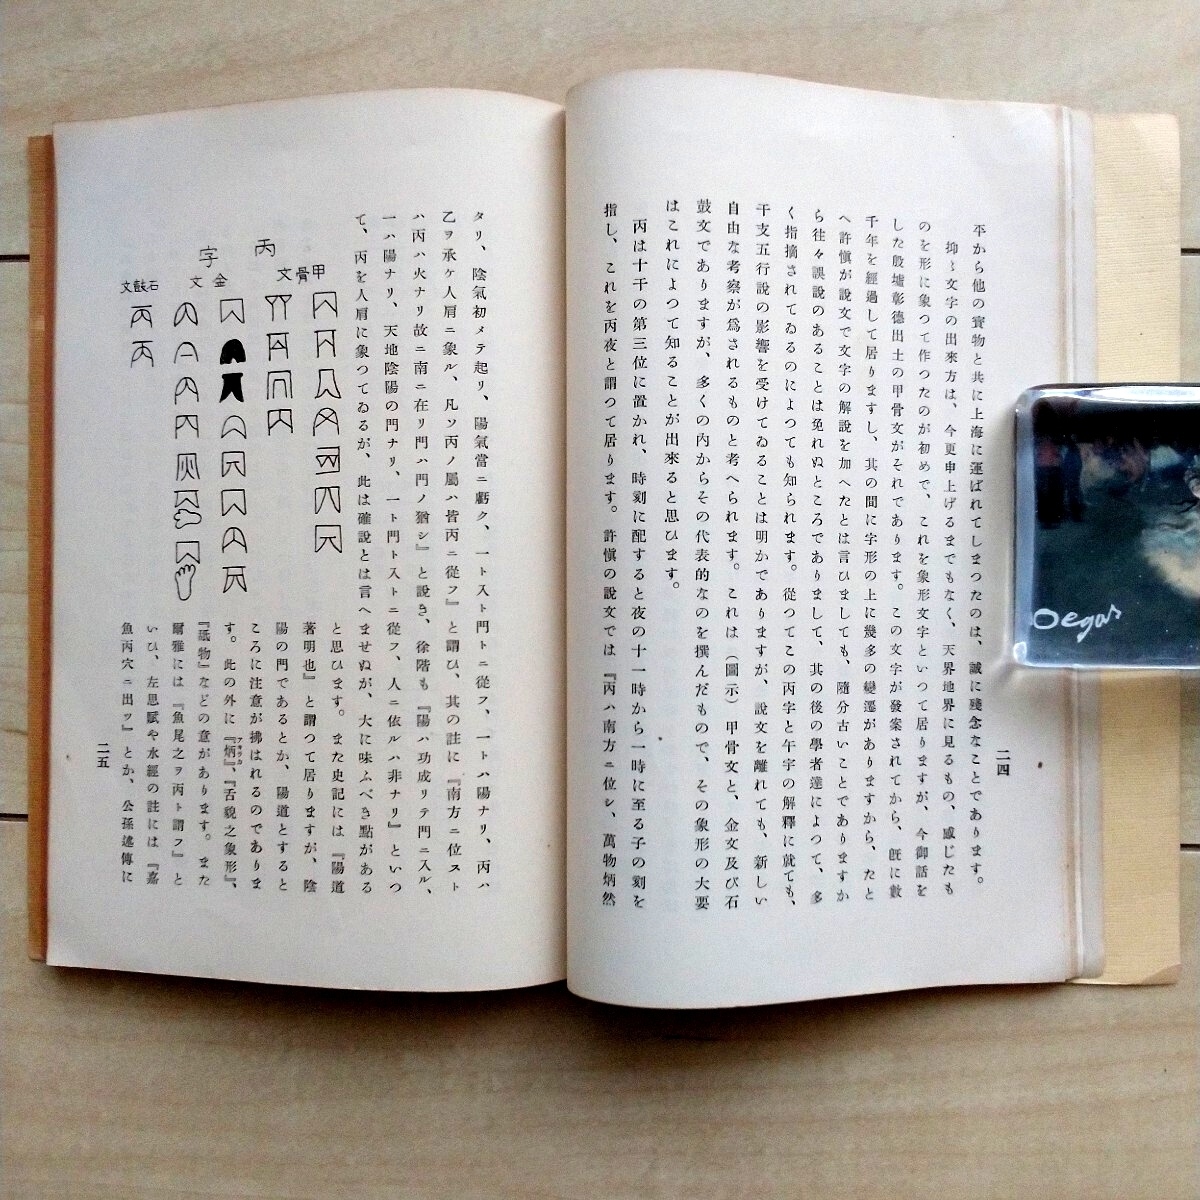 平から他の寳物と共に上海に運ばれてしまつたのは、誠に殘念なことであります。
抑〻文字の出來方は、今更申上げるまでもなく、天界地界に見るもの、感じたも
のを形に象つて作つたのが初めで、これを象形文字といつて居りますが、今御話を
した殷墟彰德出土の甲骨文がそれであります。この文字が發案されてから、既に數
千年を經過して居りますし、其の間に字形の上に幾多の變遷がありますから、たと
へ許愼が說文で文字の解說を加へたとは言ひましても、隨分古いことでありますか
ら往々誤說のあることは免れぬところでありまして、其の後の學者達によつて、多
く指摘されてゐるのによつても知られます。從つてこの丙字と午字の解釋に就ても、
干支五行說の影響を受けてゐることは明かでありますが、說文を離れても、新しい
自由な考察が爲されるものと考へられます。これは（圖示）甲骨文と、金文及び石
鼓文でありますが、多くの內からその代表的なのを撰んだもので、その象形の大要
はこれによつて知ることが出來ると思ひます。
丙は十干の第三位に置かれ、時刻に配すると夜の十一時から一時に至る子の刻を
指し、これを丙夜と謂つて居ります。許愼の說文では『丙ハ南方ニ位シ、萬物炳然
二四
タリ、陰氣初メテ起リ、陽氣當ニ虧ク、一ト入ト門トニ從フ、一トハ陽ナリ、丙ハ
乙ヲ承ケ人肩ニ象ル、凡ソ丙ノ屬ハ皆丙ニ從フ』と謂ひ、其の註に『南方ニ位スト
ハ丙ハ火ナリ故ニ南ニ在リ門ハ門ノ猶シ』と說き、徐階も『陽ハ功成リテ門ニ入ル、
一ハ陽ナリ、天地陰陽の門ナリ、一ト門ト入トニ從フ、人ニ依ルハ非ナリ』といつ
て、丙を人肩に象つてゐるが、此は確說とは言へませぬが、大に味ふべき點がある
と思ひます。また史記には『陽道
著明也』と謂つて居りますが、陰
陽の門であるとか、陽道とすると
ころに注意が拂はれるのでありま
す。此の外に『炳』、『舌貌之象形』、
アキラカ
『砥物』などの意があります。また
爾雅には『魚尾之ヲ丙ト謂フ』と
いひ、左思賦や水經の註には『嘉
魚丙穴ニ出ヅ』とか、公孫述傳に
丙字
甲骨文
金文
石鼓文
二五
Degas